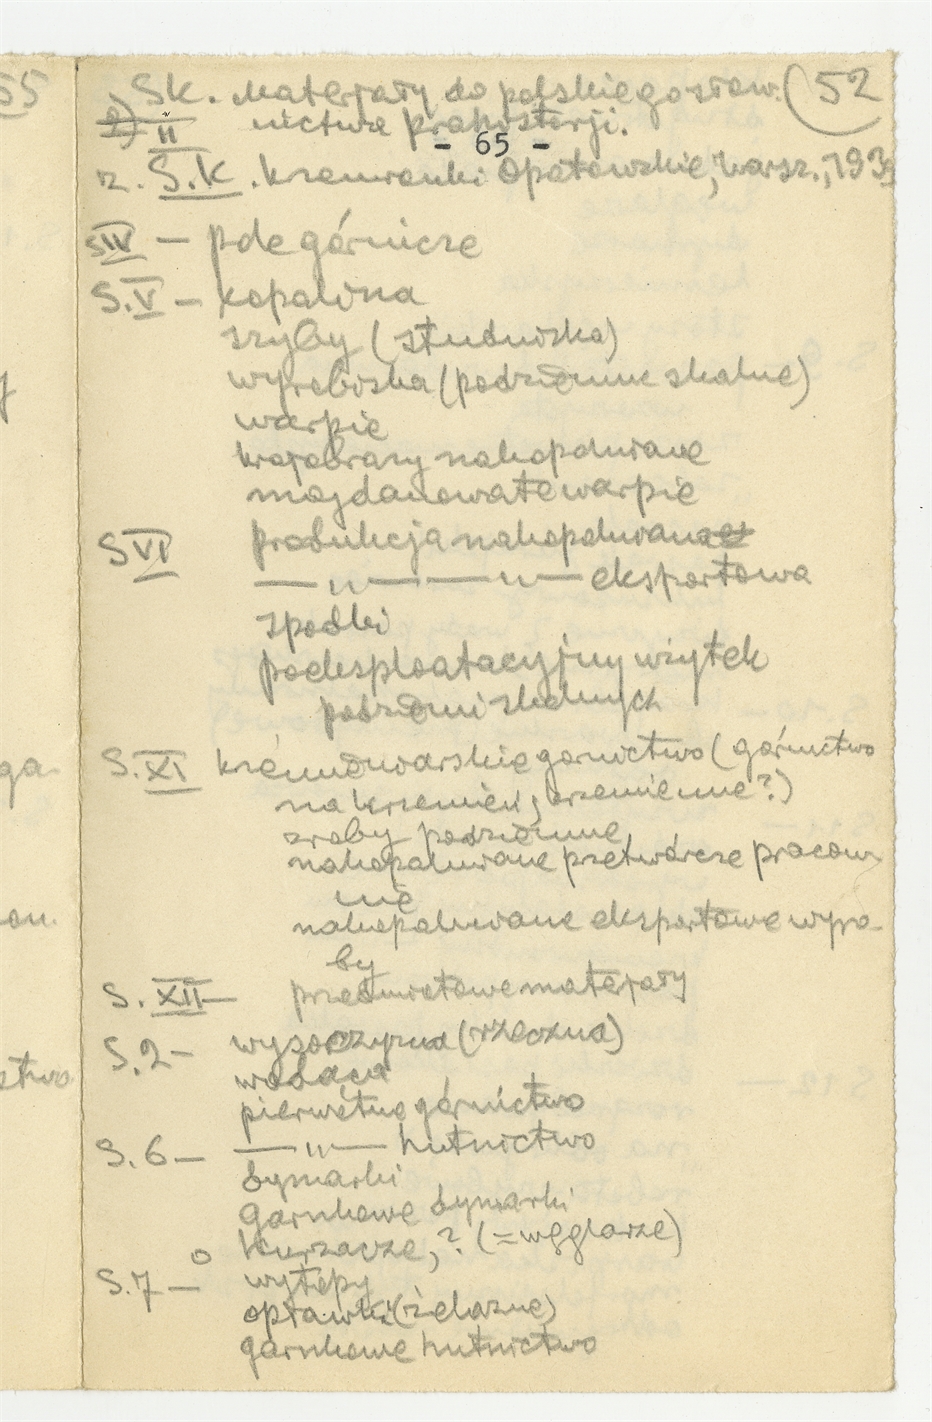 55
Sk. Materjały do polskiego słow. (52
2) II nictwa prahistorji.
- 65 -
z. S.K. Krzemionki Opatowskie, Warsz., 193
SIV — pole górnicze
S.V — kopalnia
szyby (studniska)
wyrobiska (podziemne skalne)
warpie
krajobrazy nakopalniane
majdanowate warpie
SVI produkcja nakopalniana
— „ — — „ — eksportowa
spodki
poeksploatacyjny użytek
podziemi skalnych
S.XI krzemieniarskie gornictwo (górnictwo
na krzemień, krzemienne?)
zroby podziemne
nakopalniane przetwórcze pracow
nie
nakopalniane eksportowe wyro-
by
S.XII — przedmiotowe materjały
S.2 — wysoczyzna (rzeczna)
wodąca
pierwotne górnictwo
S.6 — — „ — hutnictwo
dymarki
garnkowe dymarki
kurzacze, ? (=węglarze)
S.7 — wytopy
opławki (żelazne)
garnkowe hutnictwo
y
ga-
on.
stwo